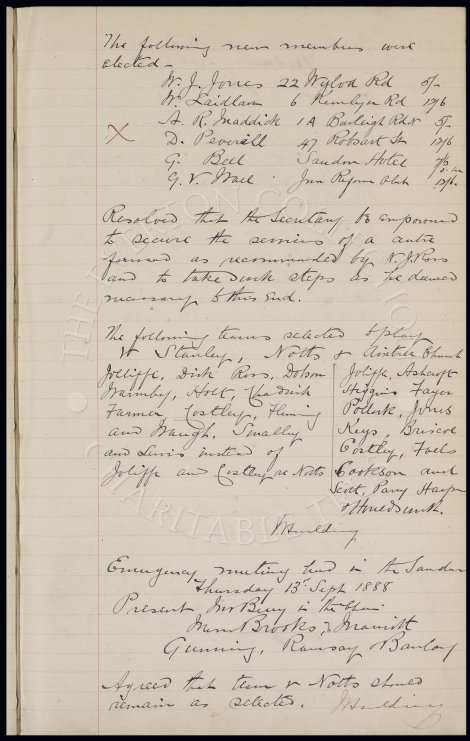 The following new members were
elected -
W. J. Jones 22 Wylod Rd 5/-
W. Laidlaw 6 Rd 12/6
A. R. Maddick 1A Burleigh Rd N 5/-
D. Peverill 47 Robsart St 12/6
G. Bell Sandon Hotel 7/6
G. V. Wall Jun Reform Club 12/6
Resolved that the Secretary be empowered
to secure the services of a centre
forward as recommended by N. J. Ross
and to take such steps as he deemed
necessary to this end.
The following teams selected to play
v Stanley, Notts & Aintree Church
Jolliffe, Dick Ross, Dobson
Warmby, Holt, Chadwick
Farmer Costley, Fleming
and Waugh. Smalley
and Lewis instead of
Joliffe and Costley at Notts
Joliffe, Ashcroft
Higgins Fayer
Pollock, Jones
Keys, Briscoe
Costley, Falls
Cookson and
Scott, Parry Harper
J Houlding
Emergency meeting held in the Sandon
Thursday 13th Sept 1888
Present, Mr Berry in the Chair
Messrs Brooks, Marriott
Gunning, Ramsay & Barclay
Agreed that team v Notts should
remain as selected. J Houlding
THE EVERTON COLLECTION
CHARITABLE TRUST